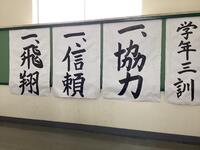 学年三訓
一、協力
一、信頼
一、飛翔